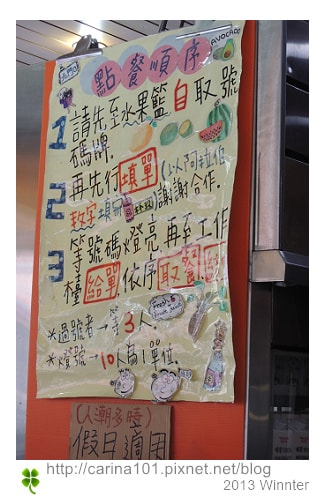 AVOCADO
點餐順序
1 請先至水果籃自取號
碼牌.
2 再先行填單(以阿拉伯
數字填寫)謝謝合作.
3 等號碼燈亮,再至工作
檯給單.依序取餐
Fresh
Fruit
*過號者→等3人.
*燈號→10人為1單位.
(人潮多時)
假日適用
http://carina101.pixnet.net/blog
2013 Winnter